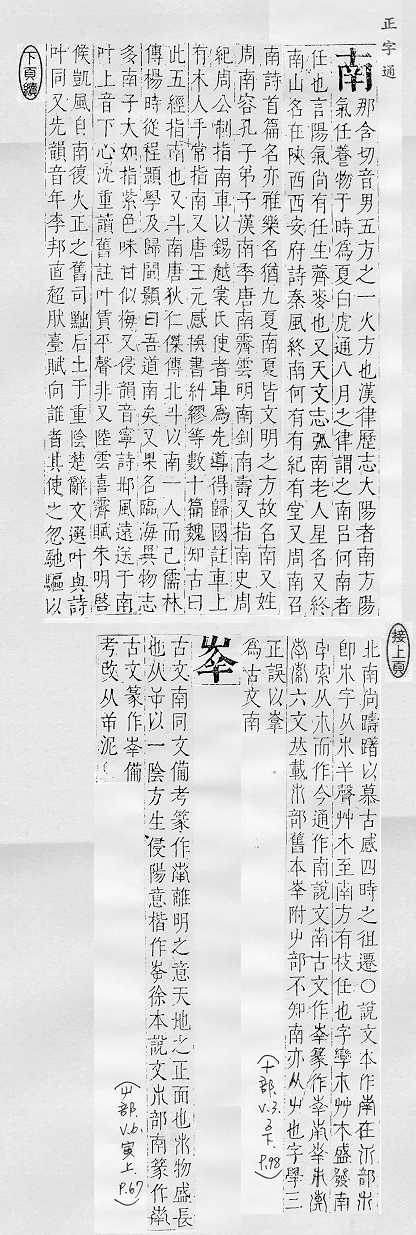 正字通
南
那含切音男五方之一火方也漢律歷志大陽者南方陽
氣任養物于時為夏白虎通八月之律謂之南呂何南者
任也言陽氣尚有任生薺麥也又天文志弧南老人星名又終
南山名在陝西西安府詩秦風終南何有有紀有堂又周南召
南詩首篇名亦雅樂名猶九夏南夏皆文明之方故名南又姓
周南容孔子弟子漢南季唐南霽雲明南釗南壽又指南史周
紀周公制指南車以錫越裳氏使者車為先導得歸國註車上
有木人手常指南又唐王元感撰書糾繆等數十篇魏知古曰
此五經指南也又斗南唐狄仁傑傳北斗以南一人而已儒林
傳楊時從程顥學及歸閩顥曰吾道南矣又果名臨海異物志
多南子大如指紫色味甘似梅又侵韻音寧詩邶風遠送于南
叶上音下心沈重讀舊註叶賃平聲非又陸雲喜霽賦朱明啓
候凱風自南復火正之舊司黜后土于重陰楚辭文選叶與詩
叶同又先韻音年李邦直超肰臺賦向誰者其使之忽馳驅以
下頁續
接上頁
北南尚躊躇以慕古感四時之徂遷○說文本作在部
即字从聲艸木至南方有枝任也字木艸木盛發南
从木而作今通作南說文南古文作篆作
六文丛載部舊本附屮部不知南亦从屮也字學三
正誤以
為古文南
(十部.V.3.子下.P.98)
古文南同文備考篆作離明之意天地之正面也物盛長
也从以一陰方生侵陽意楷作徐本說文部南篆作
古文篆作備
考改从泥
(屮部.V.6.寅上.P.67)